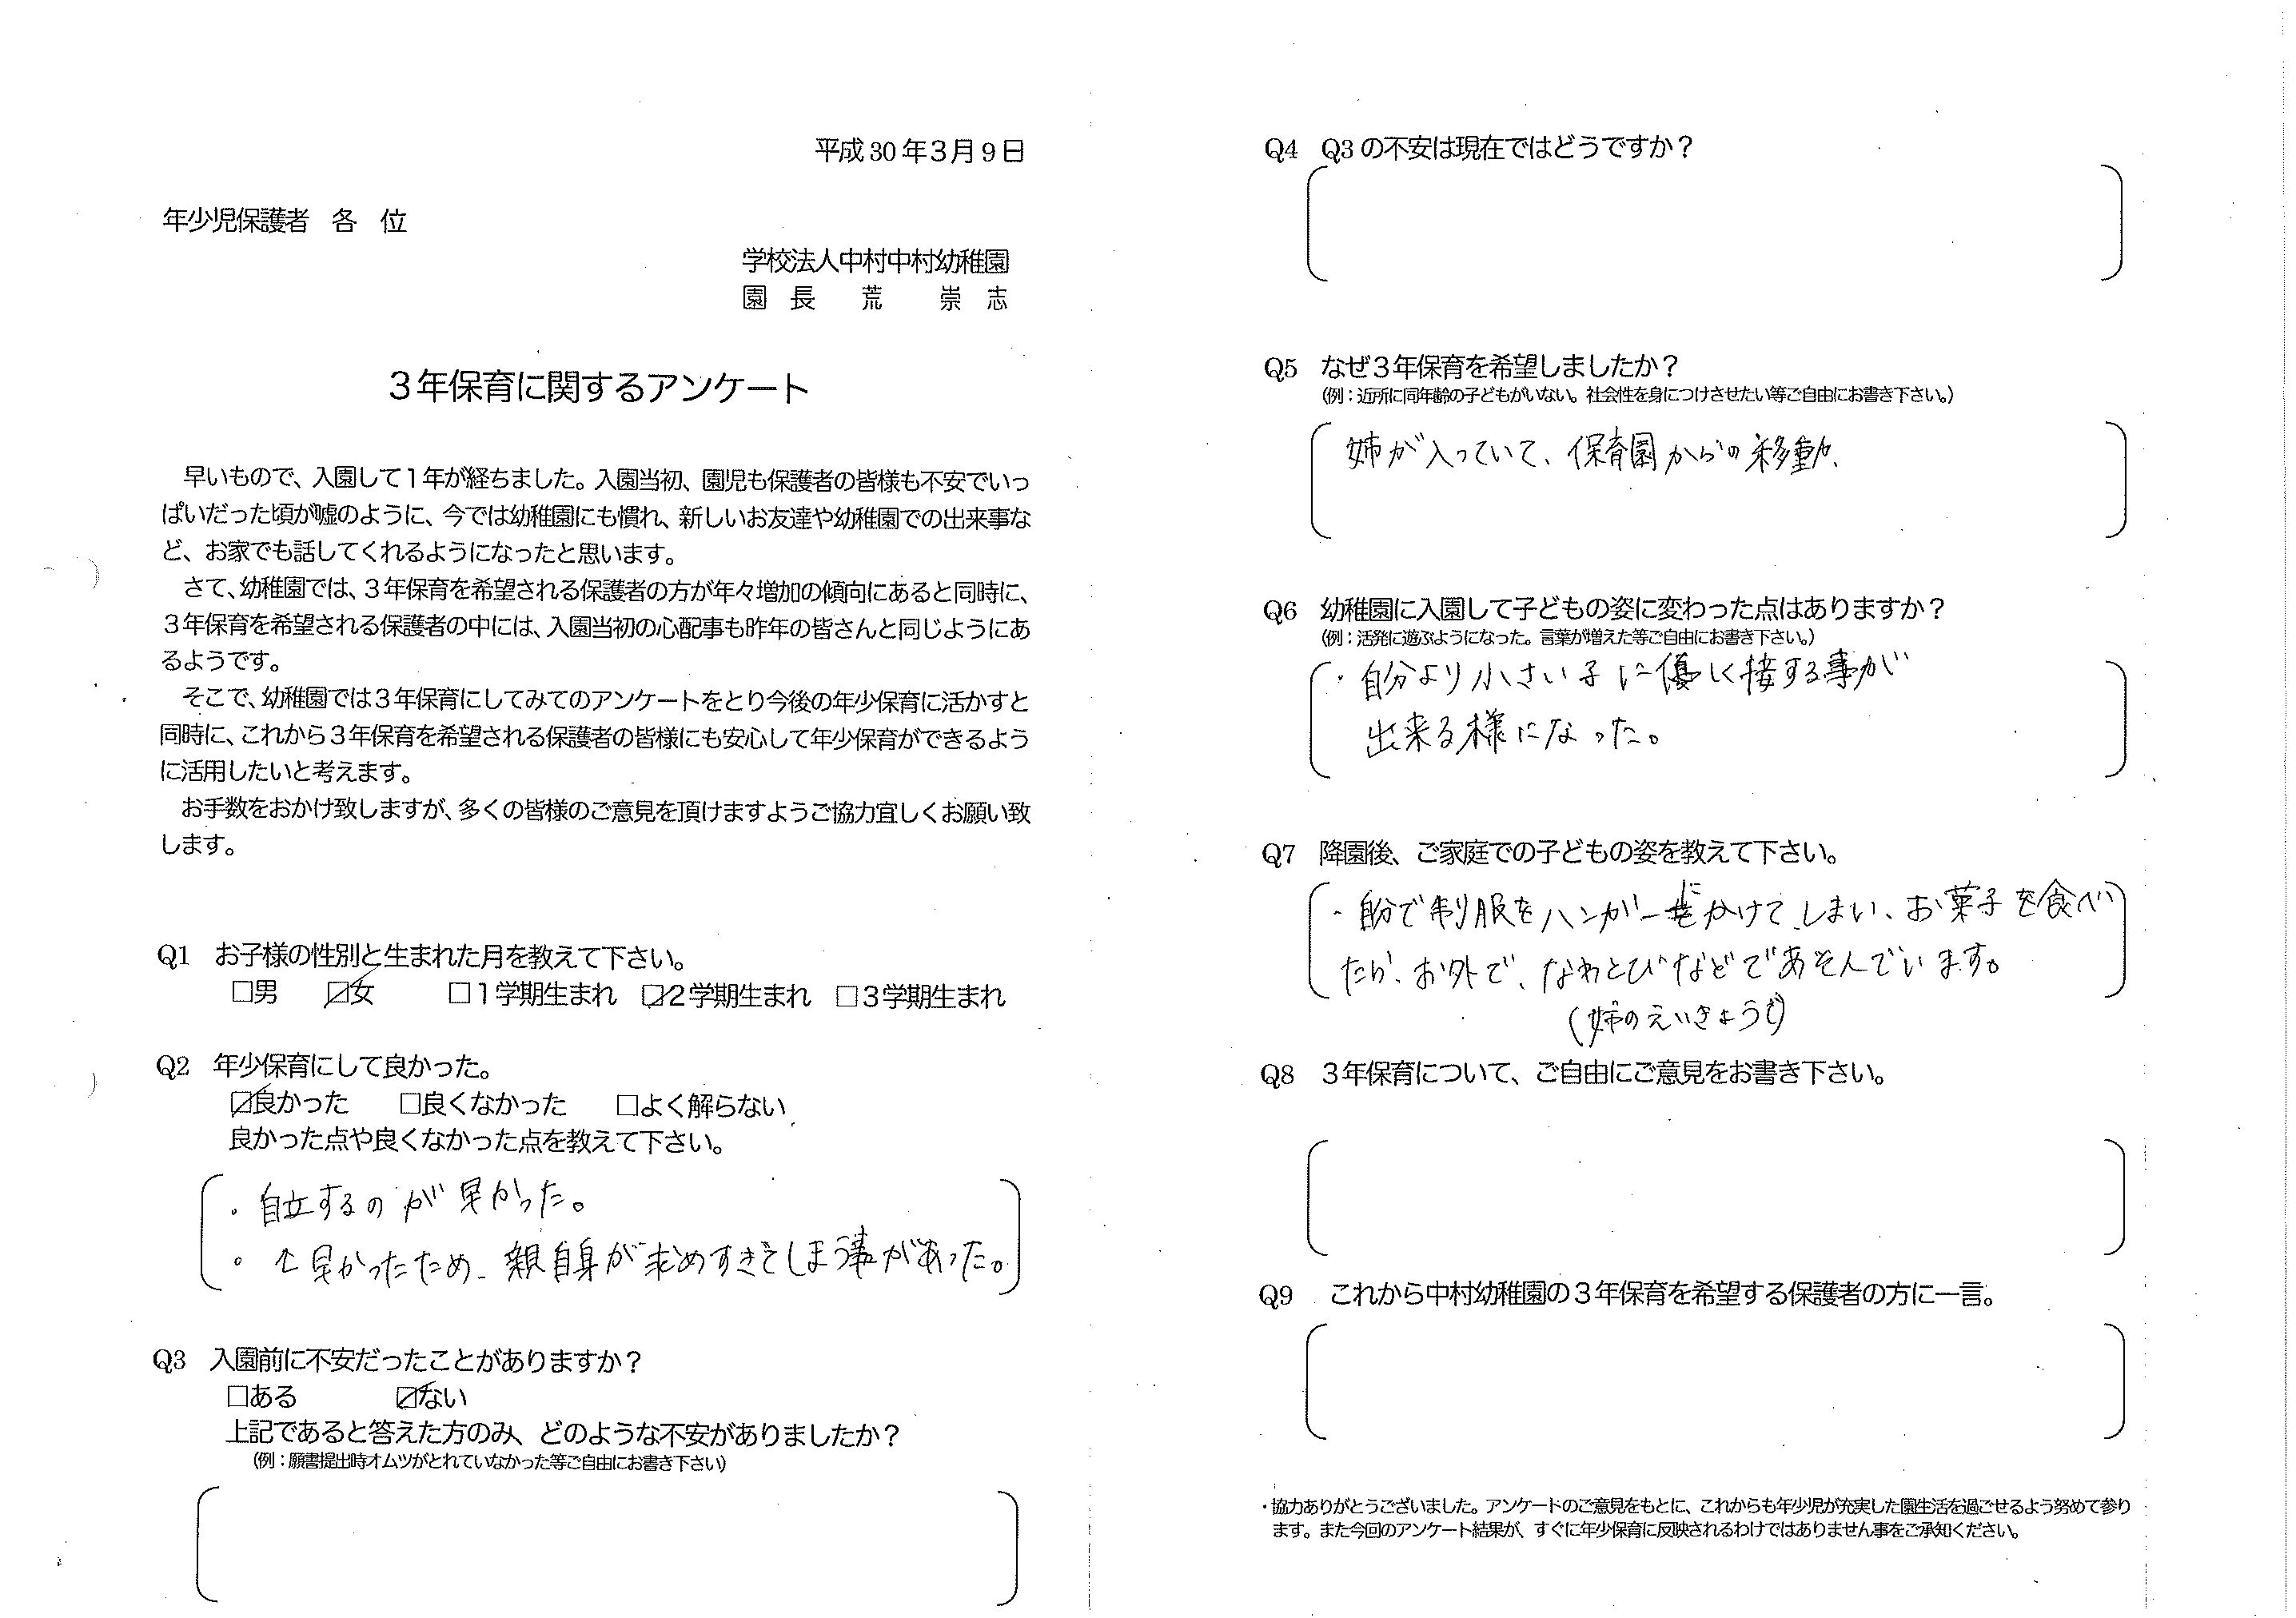 平成30年3月9日
年少児保護者　各　位
学校法人中村中村幼稚園
園　長　荒　崇　志
３年保育に関するアンケート
早いもので、入園して１年が経ちました。入園当初、園児も保護者の皆様も不安でいっ
ぱいだった頃が嘘のように、今では幼稚園にも慣れ、新しいお友達や幼稚園での出来事な
ど、お家でも話してくれるようになったと思います。
さて、幼稚園では、３年保育を希望される保護者の方が年々増加の傾向にあると同時に、
３年保育を希望される保護者の中には、入園当初の心配事も昨年の皆さんと同じようにあ
るようです。
そこで、幼稚園では３年保育にしてみてのアンケートをとり今後の年少保育に活かすと
同時に、これから３年保育を希望される保護者の皆様にも安心して年少保育ができるよう
に活用したいと考えます。
お手数をおかけ致しますが、多くの皆様のご意見を頂けますようご協力宜しくお願い致
します。
Q1　お子様の性別と生まれた月を教えて下さい。
□男　☑女　□１学期生まれ　☑２学期生まれ　□３学期生まれ
Q2　年少保育にして良かった。
☑良かった　□良くなかった　□よく解らない
良かった点や良くなかった点を教えて下さい。
・自立するのが早かった。
・↑早かったため、親自身が求めすぎてしまう事があった。
Q3　入園前に不安だったことがありますか？
□ある　☑ない
上記であると答えた方のみ、どのような不安がありましたか？
（例：願書提出時オムツがとれていなかった等ご自由にお書き下さい）
Q4　Q3の不安は現在ではどうですか？
Q5　なぜ３年保育を希望しましたか？
（例：近所に同年齢の子どもがいない。社会性を身につけさせたい等ご自由にお書き下さい。）
姉が入っていて、保育園からの移動、
Q6　幼稚園に入園して子どもの姿に変わった点はありますか？
（例：活発に遊ぶようになった。言葉が増えた等ご自由にお書き下さい。）
・自分より小さい子に優しく接する事が
出来る様になった。
Q7　降園後、ご家庭での子どもの姿を教えて下さい。
・自分で制服をハンガーにかけてしまい、お菓子を食べ
たら、お外で、なわとびなどであそんでいます。
（姉のえいきょうも）
Q8　３年保育について、ご自由にご意見をお書き下さい。
Q9　これから中村幼稚園の３年保育を希望する保護者の方に一言。
・協力ありがとうございました。アンケートのご意見をもとに、これからも年少児が充実した園生活を過ごせるよう努めて参り
ます。また今回のアンケート結果が、すぐに年少保育に反映されるわけではありません事をご承知ください。